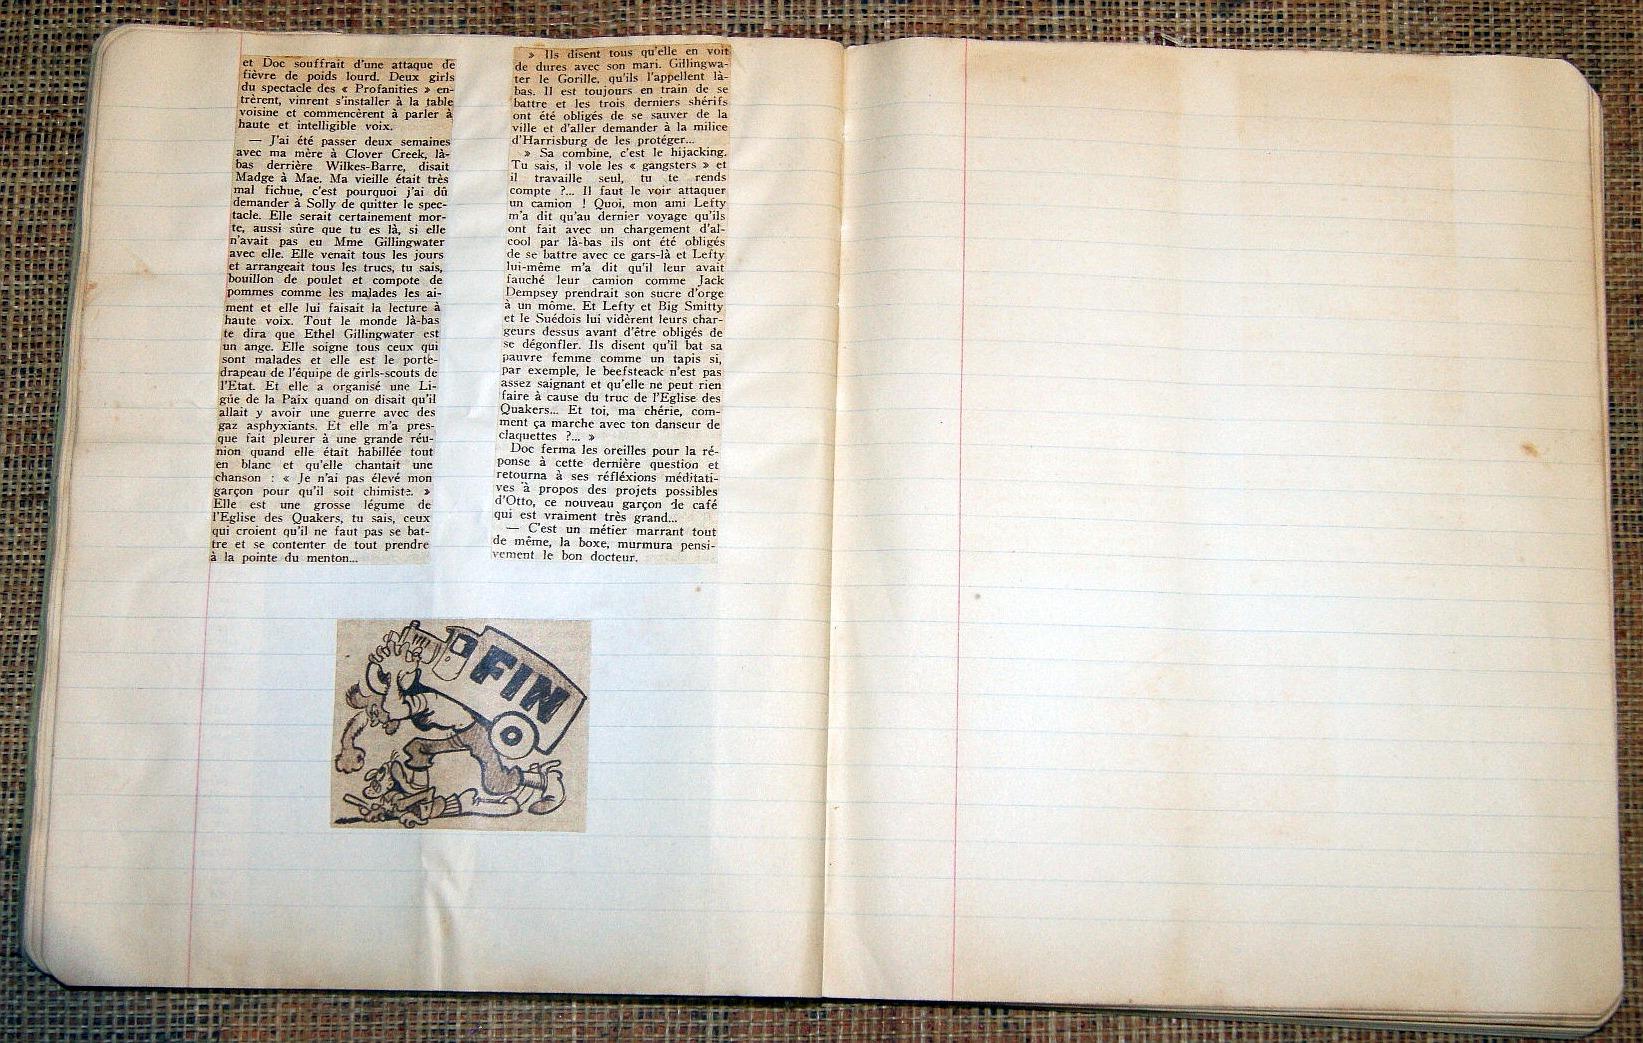 et Doc souffrait d'une attaque de
fièvre de poids lourd. Deux girls
du spectacle des « Profanities » en-
trèrent, vinrent s'installer à la table
voisine et commencèrent à parler à
haute et intelligible voix.
— J'ai été passer deux semaines
avec ma mère à Clover Creek, là-
bas derrière Wilkes-Barre, disait
Madge à Mae. Ma vieille était très
mal fichue, c'est pourquoi j'ai dû
demander à Solly de quitter le spec-
tacle. Elle serait certainement mor-
te, aussi sûre que tu es là, si elle
n'avait pas eu Mme Gillingwater
avec elle. Elle venait tous les jours
et arrangeait tous les trucs, tu sais,
bouillon de poulet et compote de
pommes comme les malades les ai-
ment et elle lui faisait la lecture à
haute voix. Tout le monde là-bas
te dira que Ethel Gillingwater est
un ange. Elle soigne tous ceux qui
sont malades et elle est le porte-
drapeau de l'équipe de girls-scouts de
l'Etat. Et elle a organisé une Li-
gue de la Paix quand on disait qu'il
allait y avoir une guerre avec des
gaz asphyxiants. Et elle m'a pres-
que fait pleurer à une grande réu-
nion quand elle était habillée tout
en blanc et qu'elle chantait une
chanson : « Je n'ai pas élevé mon
garçon pour qu'il soit chimiste. »
Elle est une grosse légume de
l'Eglise des Quakers, tu sais, ceux
qui croient qu'il ne faut pas se bat-
tre et se contenter de tout prendre
à la pointe du menton...
» Ils disent tous qu'elle en voit
de dures avec son mari. Gillingwa-
ter le Gorille, qu'ils l'appellent là-
bas. Il est toujours en train de se
battre et les trois derniers shérifs
ont été obligés de se sauver de la
ville et d'aller demander à la milice
d'Harrisburg de les protéger...
» Sa combine, c'est le hijacking.
Tu sais, il vole les « gangsters » et
il travaille seul, tu te rends
compte ?... Il faut le voir attaquer
un camion ! Quoi, mon ami Lefty
m'a dit qu'au dernier voyage qu'ils
ont fait avec un chargement d'al-
cool par là-bas ils ont été obligés
de se battre avec ce gars-là et Lefty
lui-même m'a dit qu'il leur avait
fauché leur camion comme Jack
Dempsey prendrait son sucre d'orge
à un môme. Et Lefty et Big Smitty
et le Suédois lui vidèrent leurs char-
geurs dessus avant d'être obligés de
se dégonfler. Ils disent qu'il bat sa
pauvre femme comme un tapis si,
par exemple, le beefsteack n'est pas
assez saignant et qu'elle ne peut rien
faire à cause du truc de l'Eglise des
Quakers... Et toi, ma chérie, com-
ment ça marche avec ton danseur de
claquettes ?... »
Doc ferma les oreilles pour la ré-
ponse à cette dernière question et
retourna à ses réfléxions méditati-
ves à propos des projets possibles
d'Otto, ce nouveau garçon de café
qui est vraiment très grand...
— C'est un métier marrant tout
de même, la boxe, murmura pensi-
vement le bon docteur.
FIN